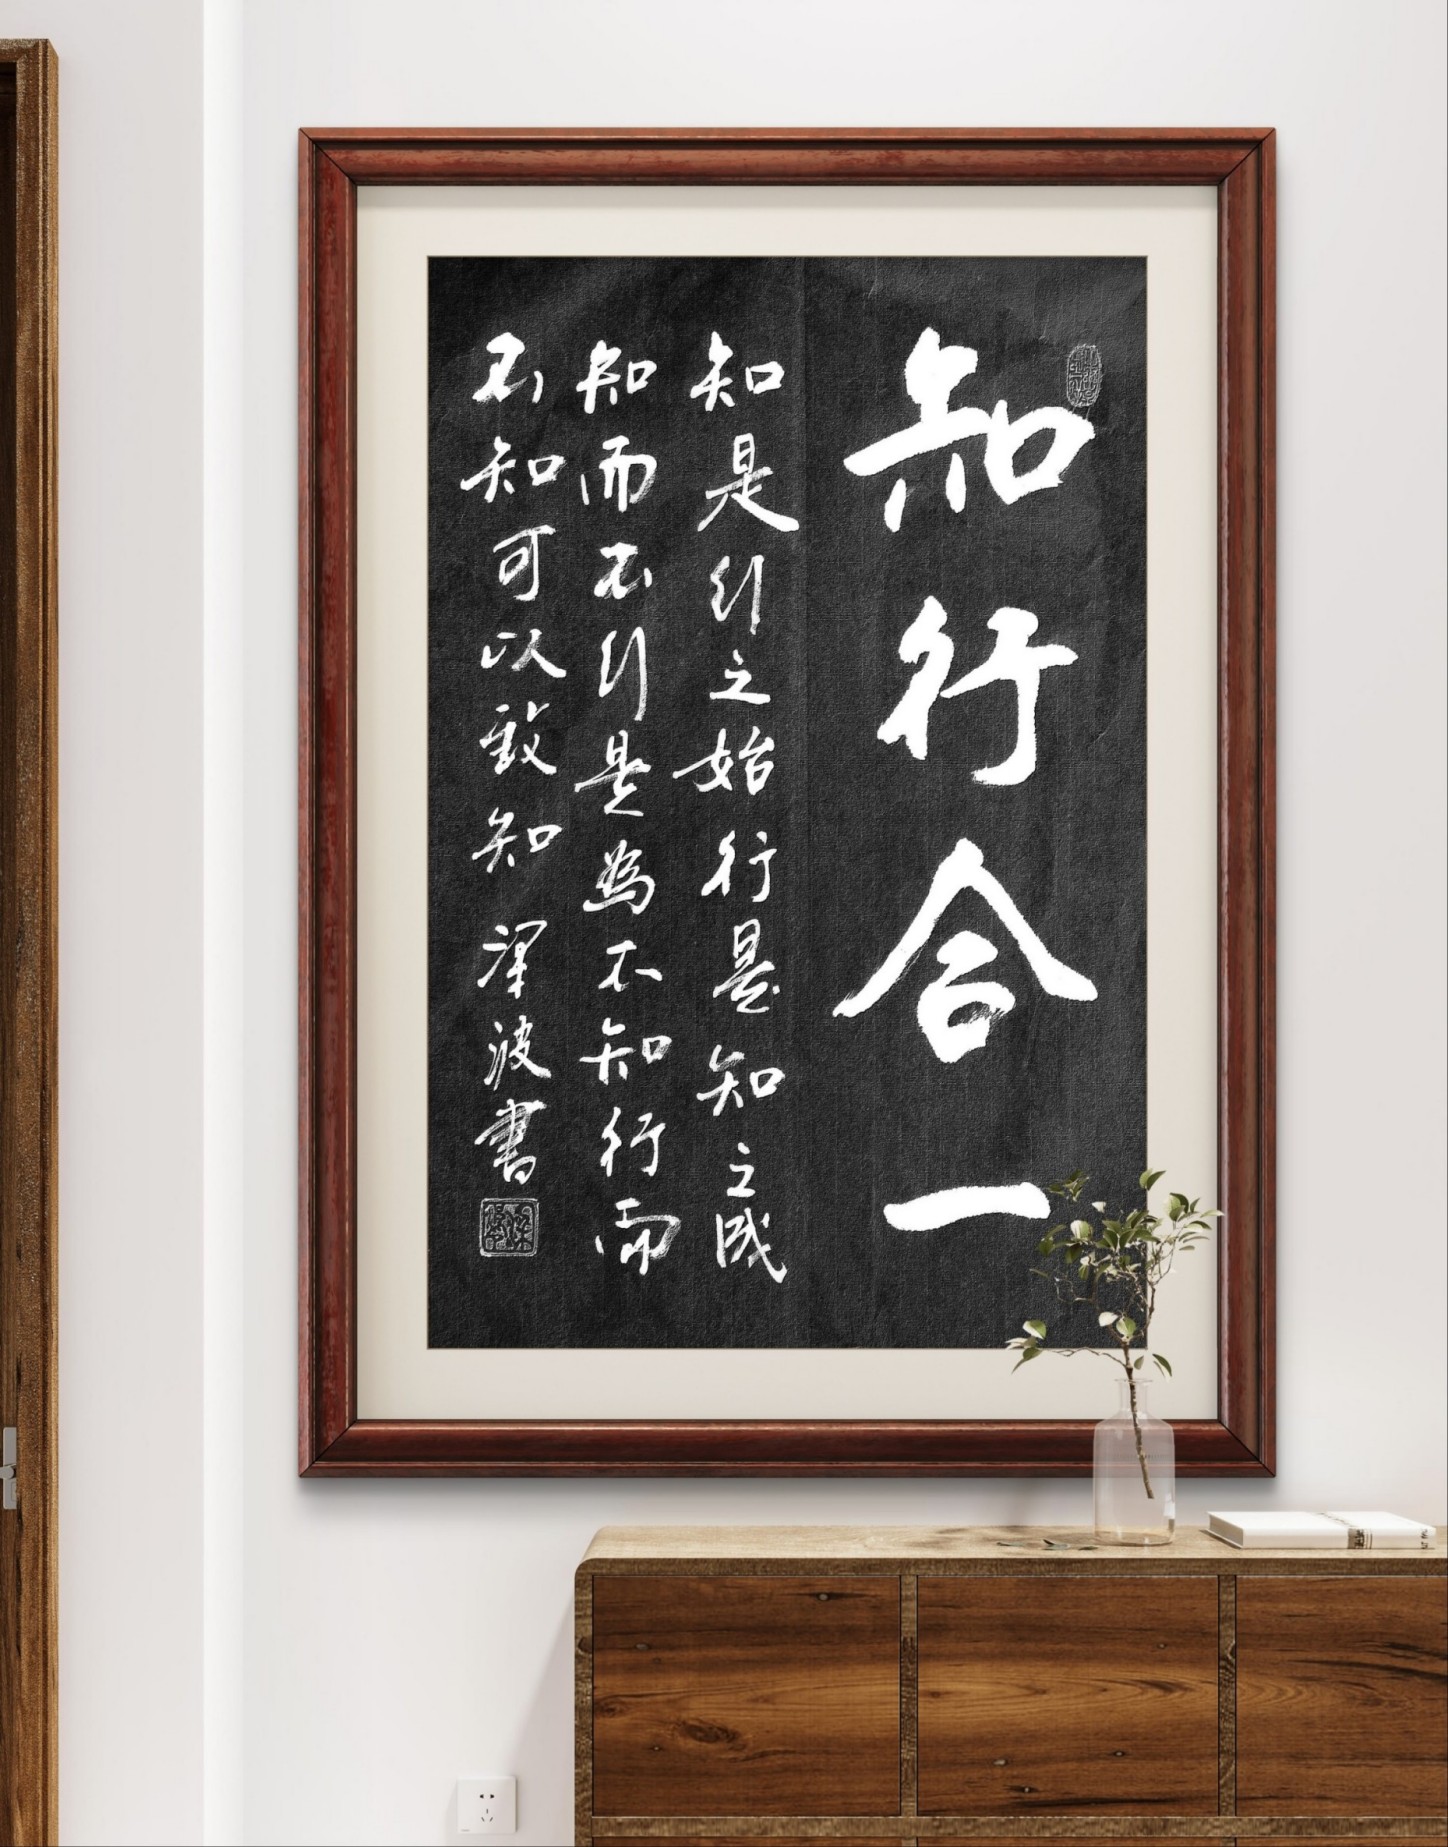 知行合一
知是行之始行是知之成
知而不行是為不知行而
不知可以致知 泽波書